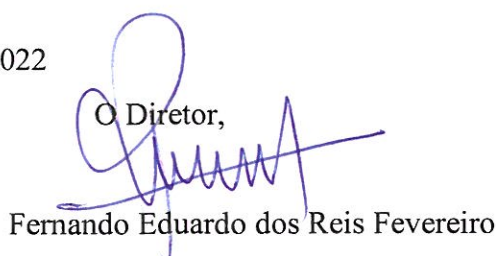 022
O Diretor,
Fernando Eduardo dos Reis Fevereiro